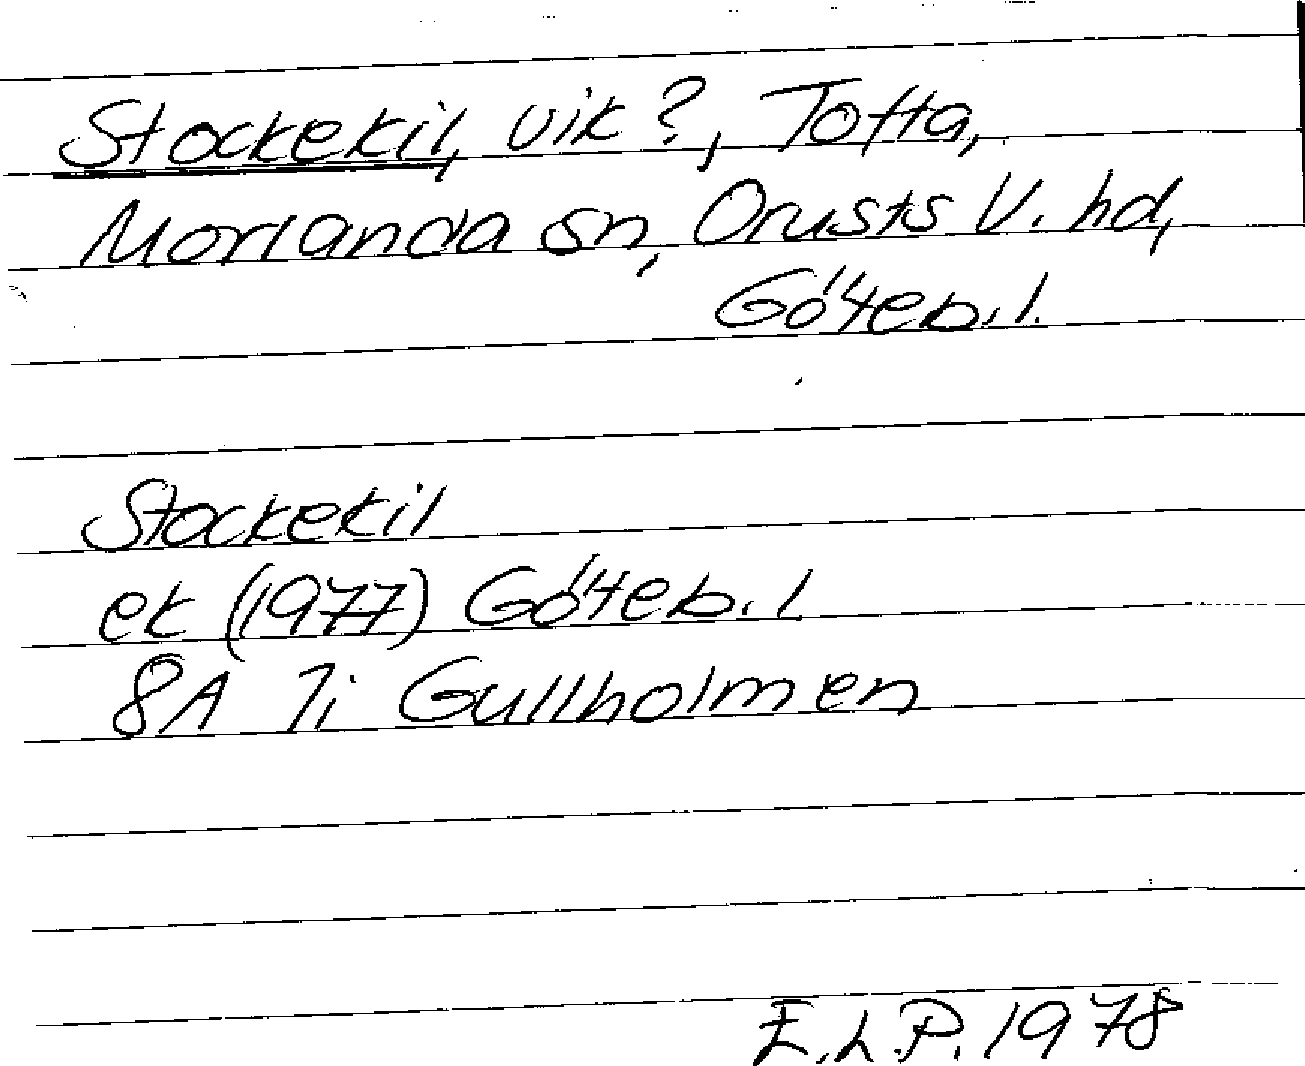 Stockekil, vik?, Tofta,
Morlanda sn, Orusts V. hd,
Göteb. l.
Stockekil
ek (1977) Göteb. l.
8A 7i Gullholmen
E.L.P. 1978